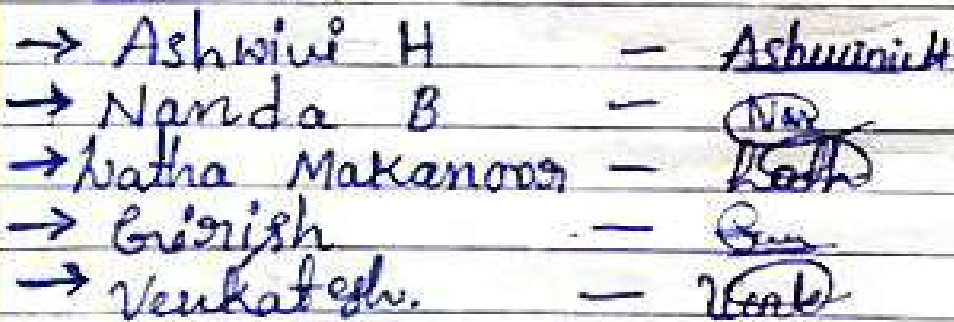 → Ashwini H — Ashwini H
→ Nanda B —
→ Latha Makanoor — Lath
→ Girish —
→ Venkatesh. — Venk